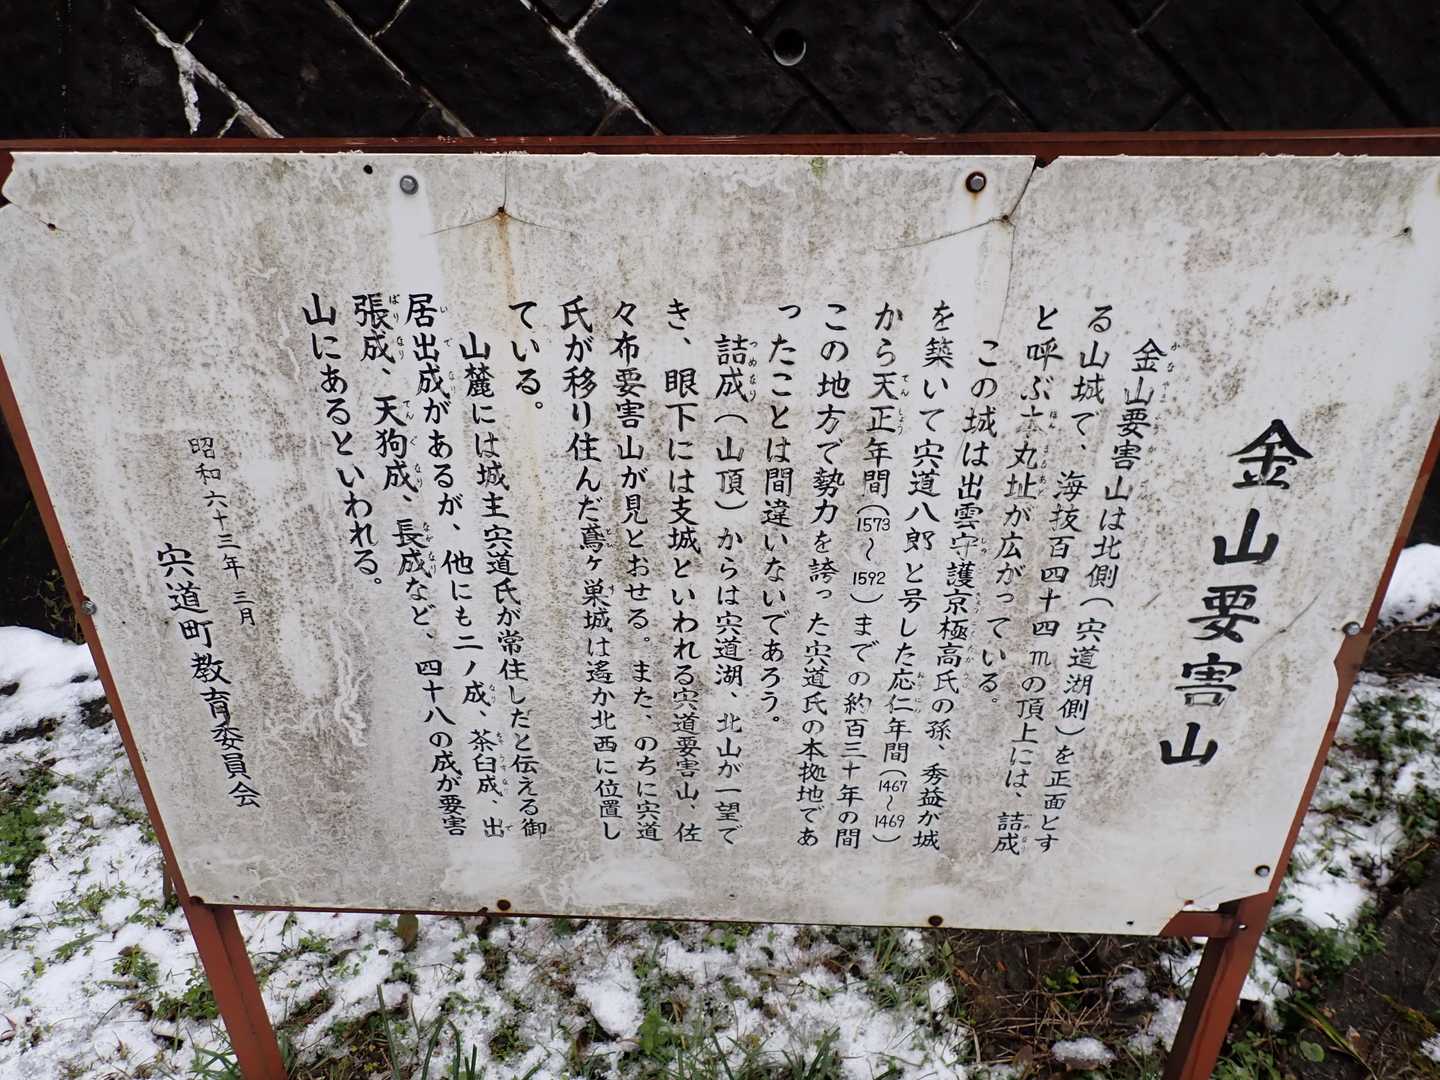 金山要害山
金山要害山は北側（宍道湖側）を正面とす
る山城で、海抜百四十四mの頂上には、詰成
と呼ぶ本丸址が広がっている。
この城は出雲守護京極高氏の孫、秀益が城
を築いて宍道八郎と号した応仁年間（1467～1469）
から天正年間（1573～1592）までの約百三十年の間
この地方で勢力を誇った宍道氏の本拠地であ
ったことは間違いないであろう。
詰成（山頂）からは宍道湖、北山が一望で
き、眼下には支城といわれる宍道要害山、佐
々布要害山が見とおせる。また、のちに宍道
氏が移り住んだ鳶ヶ巣城は遙か北西に位置し
ている。
山麓には城主宍道氏が常住したと伝える御
居出成があるが、他にも二ノ成、茶臼成、出
張成、天狗成、長成など、四十八の成が要害
山にあるといわれる。
昭和六十三年三月
宍道町教育委員会